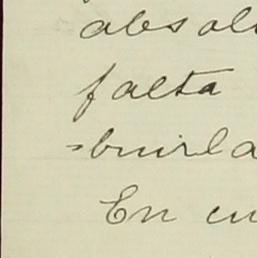 absol
falta
=burla
En cu